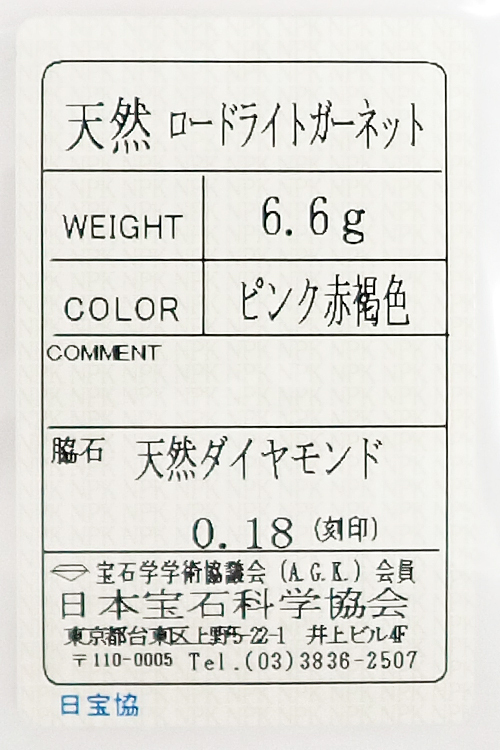 天然 ロードライトガーネット
WEIGHT 6.6g
COLOR ピンク赤褐色
COMMENT
脇石 天然ダイヤモンド
0.18 (刻印)
宝石学学術協議会 (A.G.K.) 会員
日本宝石科学協会
東京都台東区上野5-22-1 井上ビル4F
〒110-0005 Tel.(03)3836-2507
日宝協